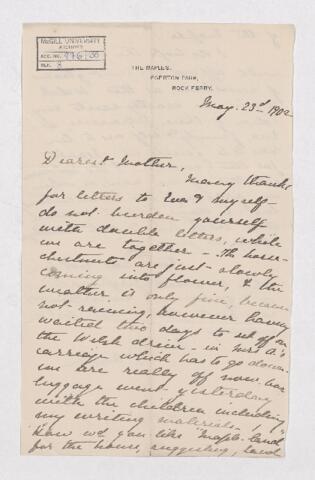 McGILL UNIVERSITY
ARCHIVES
ACC. NO. 976/00
REF. 8
THE MAPLES,
EGERTON PARK,
ROCK FERRY.
May. 23rd 1902
Dearest Mother,
Many thanks
for letters to Eva & myself -
do not burden yourself
with double letters, while
we are together - The horse-
chestnuts are just slowly
coming into flower, & the
weather is only fine, because
not raining, however having
waited two days to set off on
the Welsh drive - in Mrs A.'s
carriage which has to go down.
we are really off now, our
luggage went yesterday
with the children including
my writing materials.
How wd you like "Maple-land"
for the house, suggesting, land